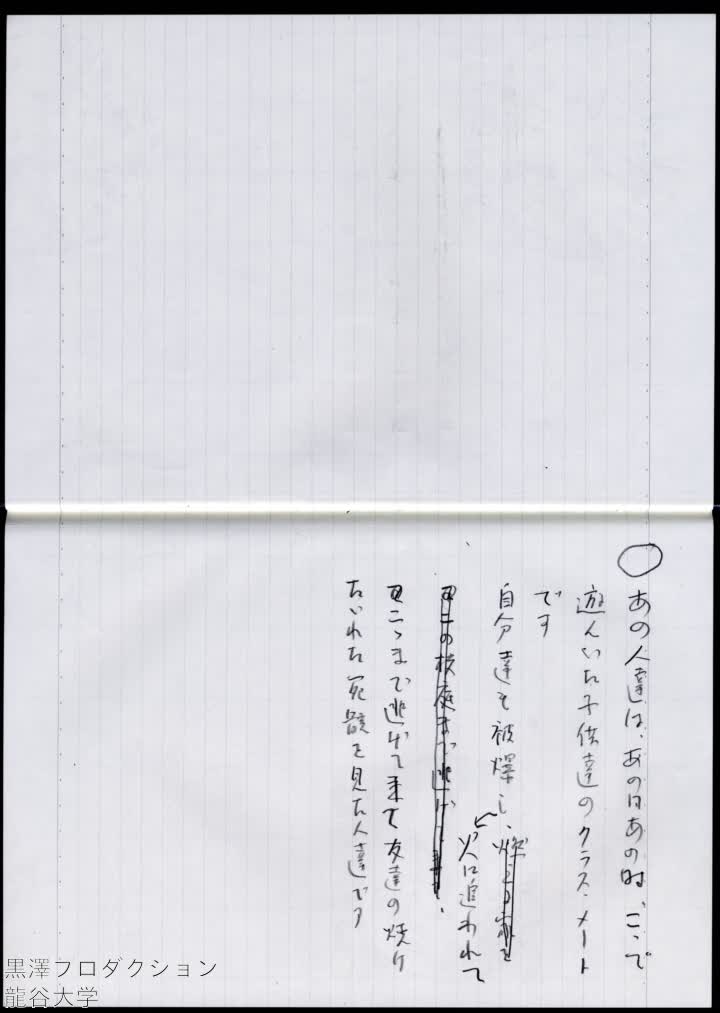 ○ あの人達は、あの日あの時、こゝで
遊んいた子供達のクラス・メート
です
自分達も被爆し、
火に追われて
この校庭まで逃げて
こゝまで逃げて来て友達の焼け
たゞれた死骸を見た人達です
黒澤フロダクション
龍谷大学